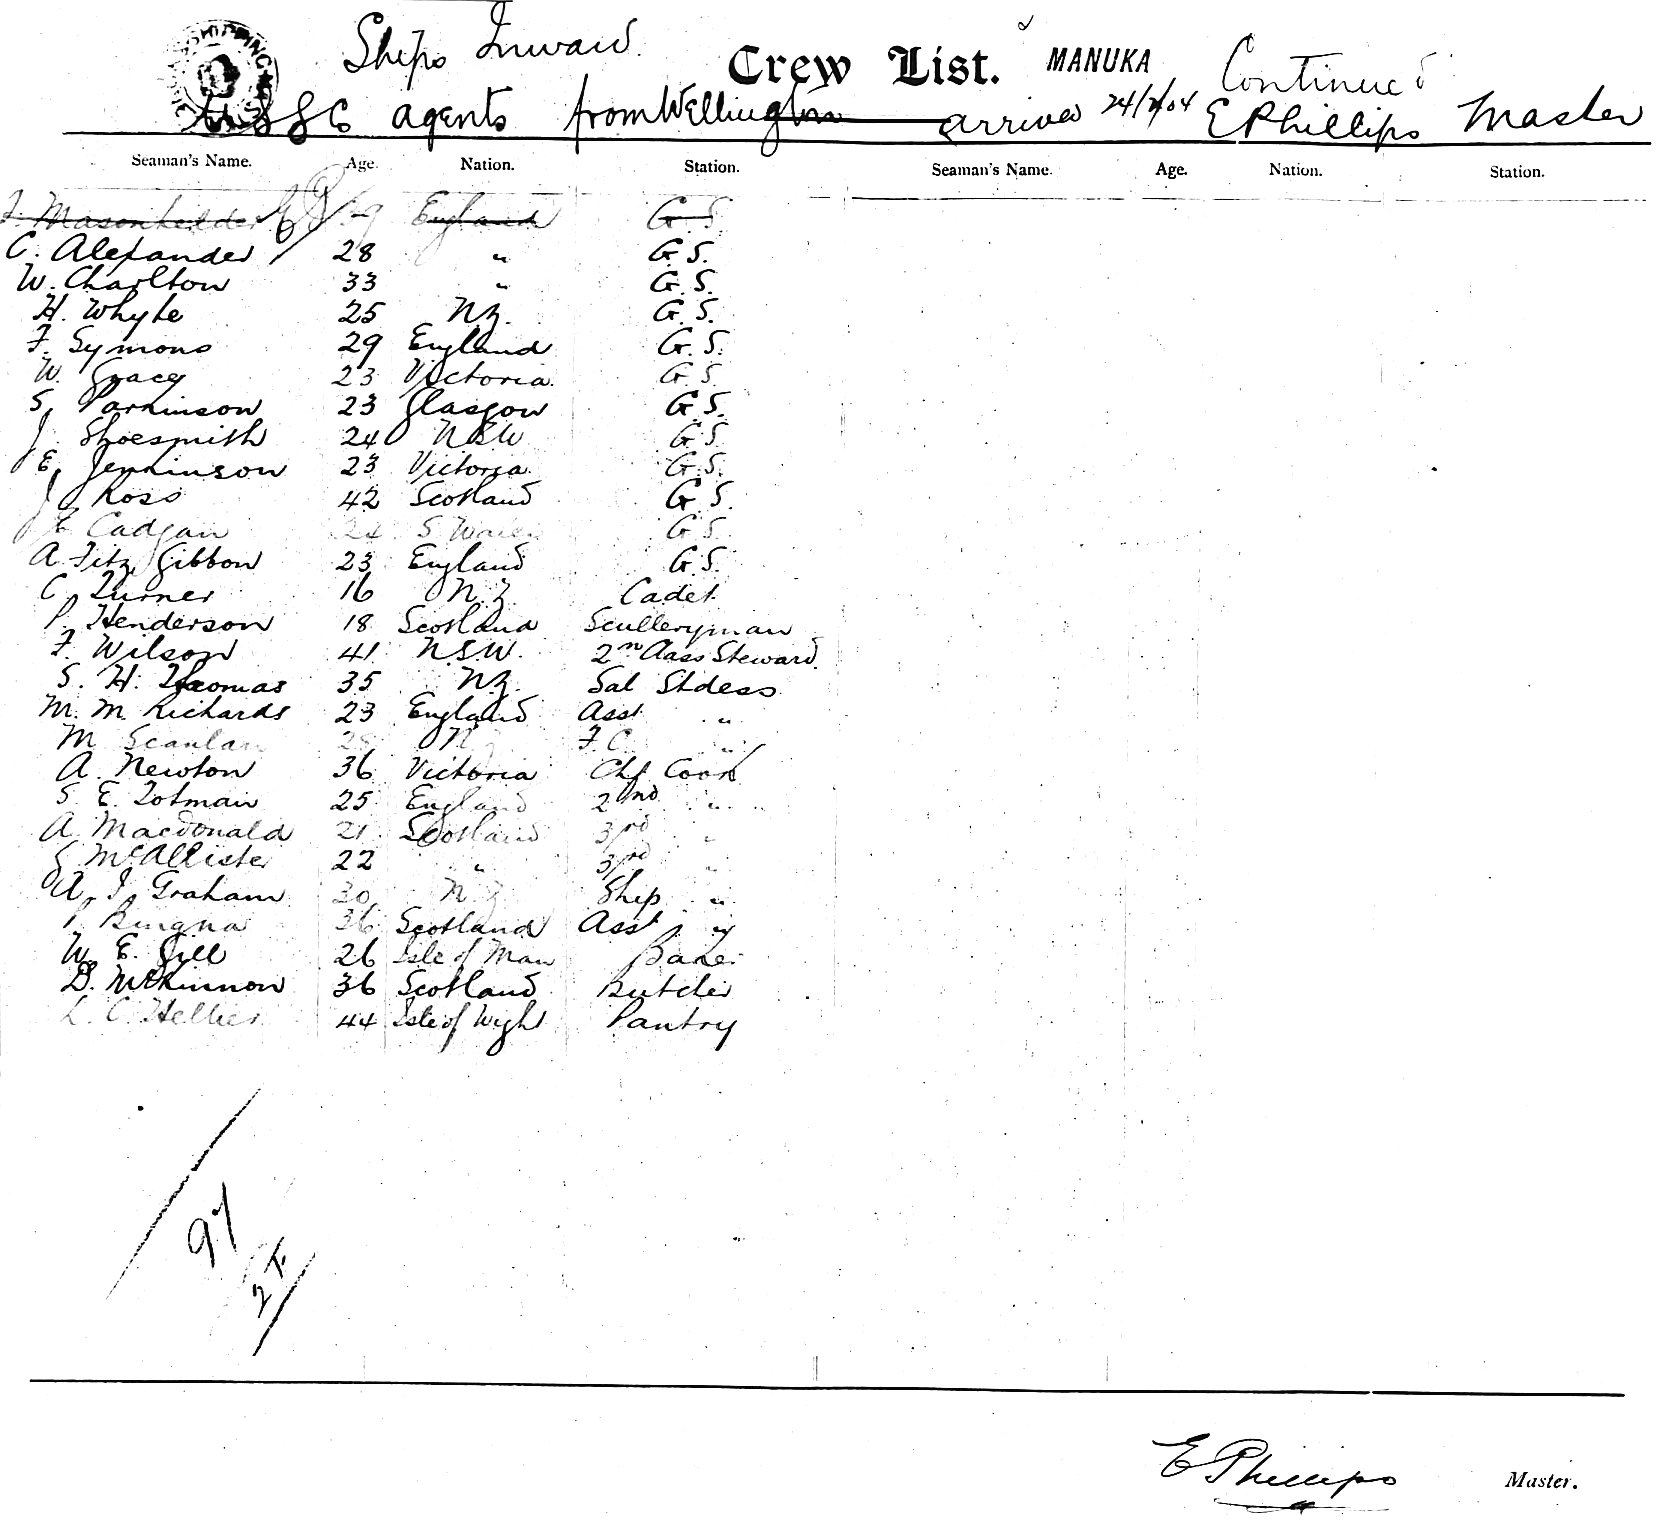 SHIPPING
Ships Inward.
Crew List. MANUKA Continued
U S S Co agents from Wellington arrived 24/2/04 E Phillips Master
Seaman's Name. Age. Nation. Station. Seaman's Name. Age. Nation. Station.
England G. S.
C. Alexander 28 " G. S.
W. Charlton 33 " G. S.
H. Whyte 25 N.Z. G. S.
F. Symons 29 England G. S.
W. Gracy 23 Victoria. G. S.
S. Parkinson 23 Glasgow G. S.
J. Shoesmith 24 NSW G. S.
E. Jenkinson 23 Victoria G. S.
J. Ross 42 Scotland G. S.
E Cadgan 24 S Wales G S.
A Fitz Gibbon 23 England G. S.
C. Turner 16 N.Z. Cadet
P. Henderson 18 Scotland Sculleryman
F. Wilson 41 N.S.W. 2nd Class Steward
S. H. Thomas 35 NZ. Sal Stdess
M. M. Richards 23 England Asst "
M Scanlan N Z F. C. "
A. Newton 36 Victoria Chf Cook
S. E. Totman 25 England 2nd " "
A. Macdonald 21 Scotland 3rd "
McAllister 22 " 3rd "
A. J. Graham 30 N Z Ship "
36 Scotland Asst "
W. E. Gill 26 Isle of Man Baker
D. McKinnon 36 Scotland Butcher
L. C. Hellier 44 Isle of Wight Pantry
97
2 F.
E Phillips Master.